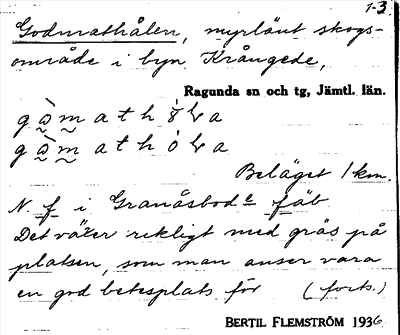 1-3.
Godmathålen, myrländt skogs-
område i byn Krångede,
Ragunda sn och tg, Jämtl. län.
Beläget 1 km.
N. f. i Granåsbod.e fäb.
Det växer rikligt med gräs på
platsen, som man anser vara
en god betesplats för (forts.)
BERTIL FLEMSTRÖM 1936.